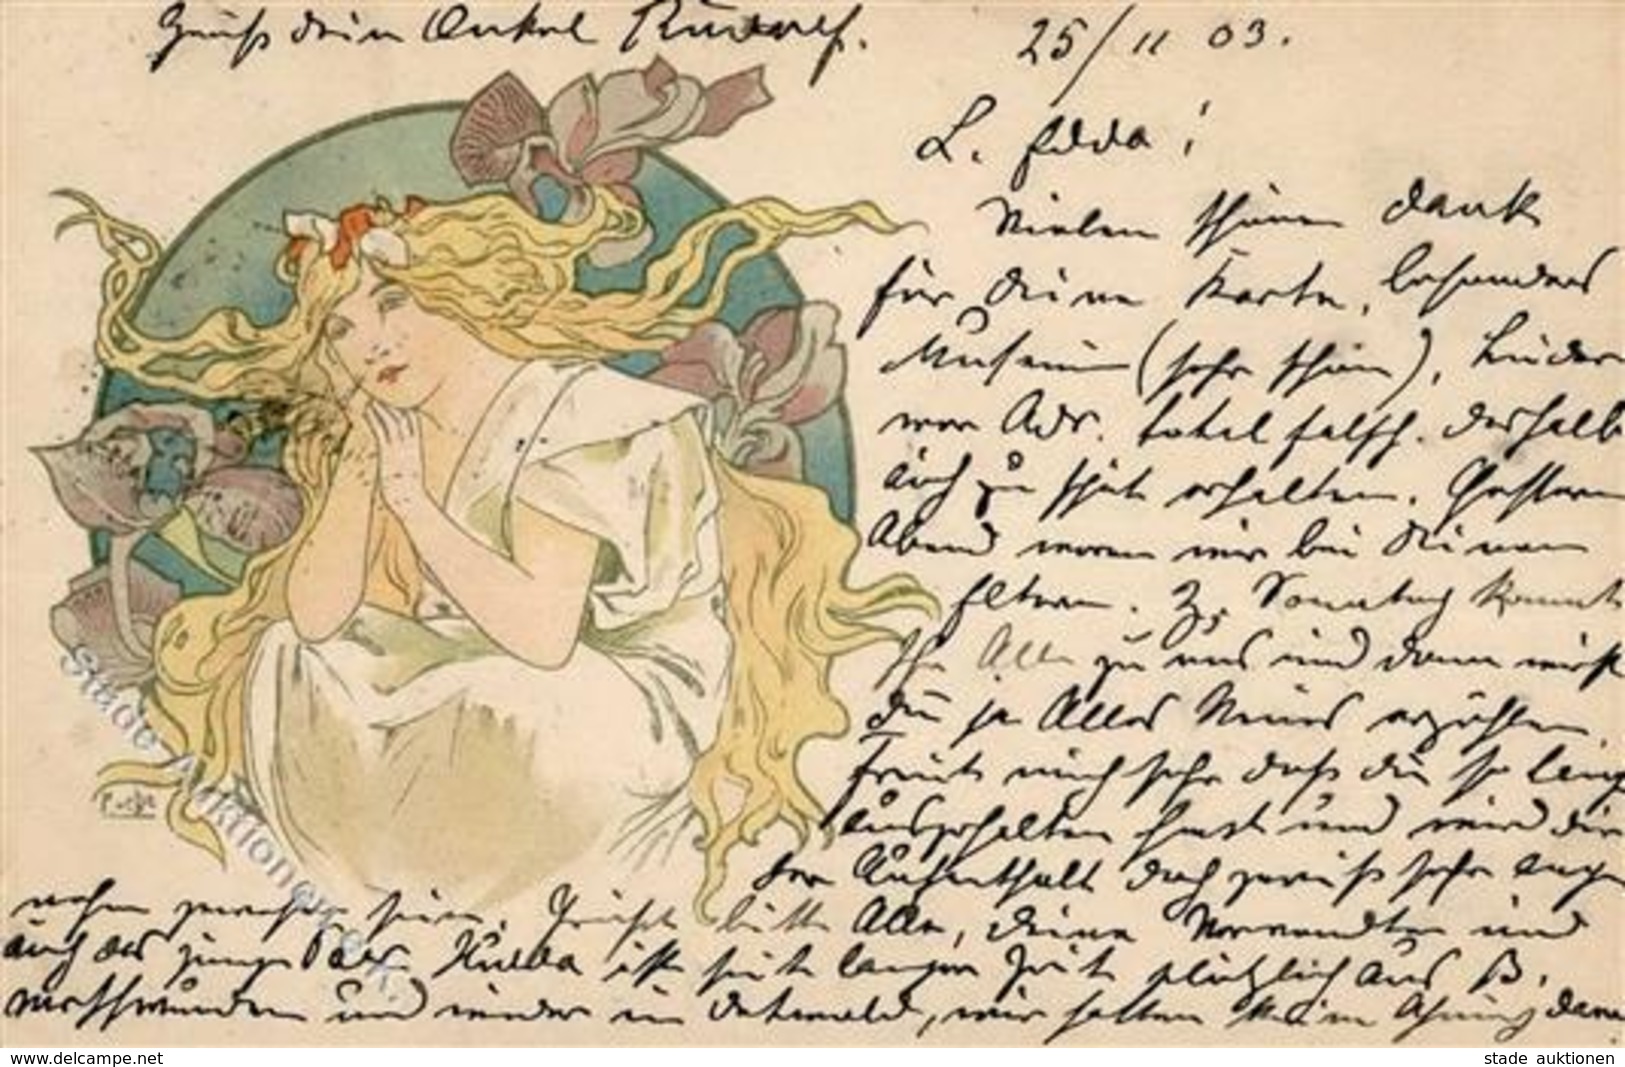 Gruß dein Onkel Rudolf.
25/11 03.
L. Edda!
Vielen schönen Dank
für deine Karte, besonders
Museum (sehr schön), Leider
war Adr. total falsch. deshalb
auch zu spät erhalten. Gestern
Abend waren wir bei deinen
Eltern. Sonntag kommt
Ihr Alle zu uns und dann wirst
du ja Alles Neues erzählen.
Freut mich sehr daß du so lang
ausgehalten hast und wird dir
der Aufenthalt doch gewiß sehr ange
nehm gewesen sein. Grüße bitte Alle, deine Verwandten und
auch das junge Hulda ist seit langer Zeit plötzlich aus B.
verschwunden und wieder in Detmold, wir hatten keine Ahnung davon
Stade-Auktionen
www.delcampe.net
stade auktionen